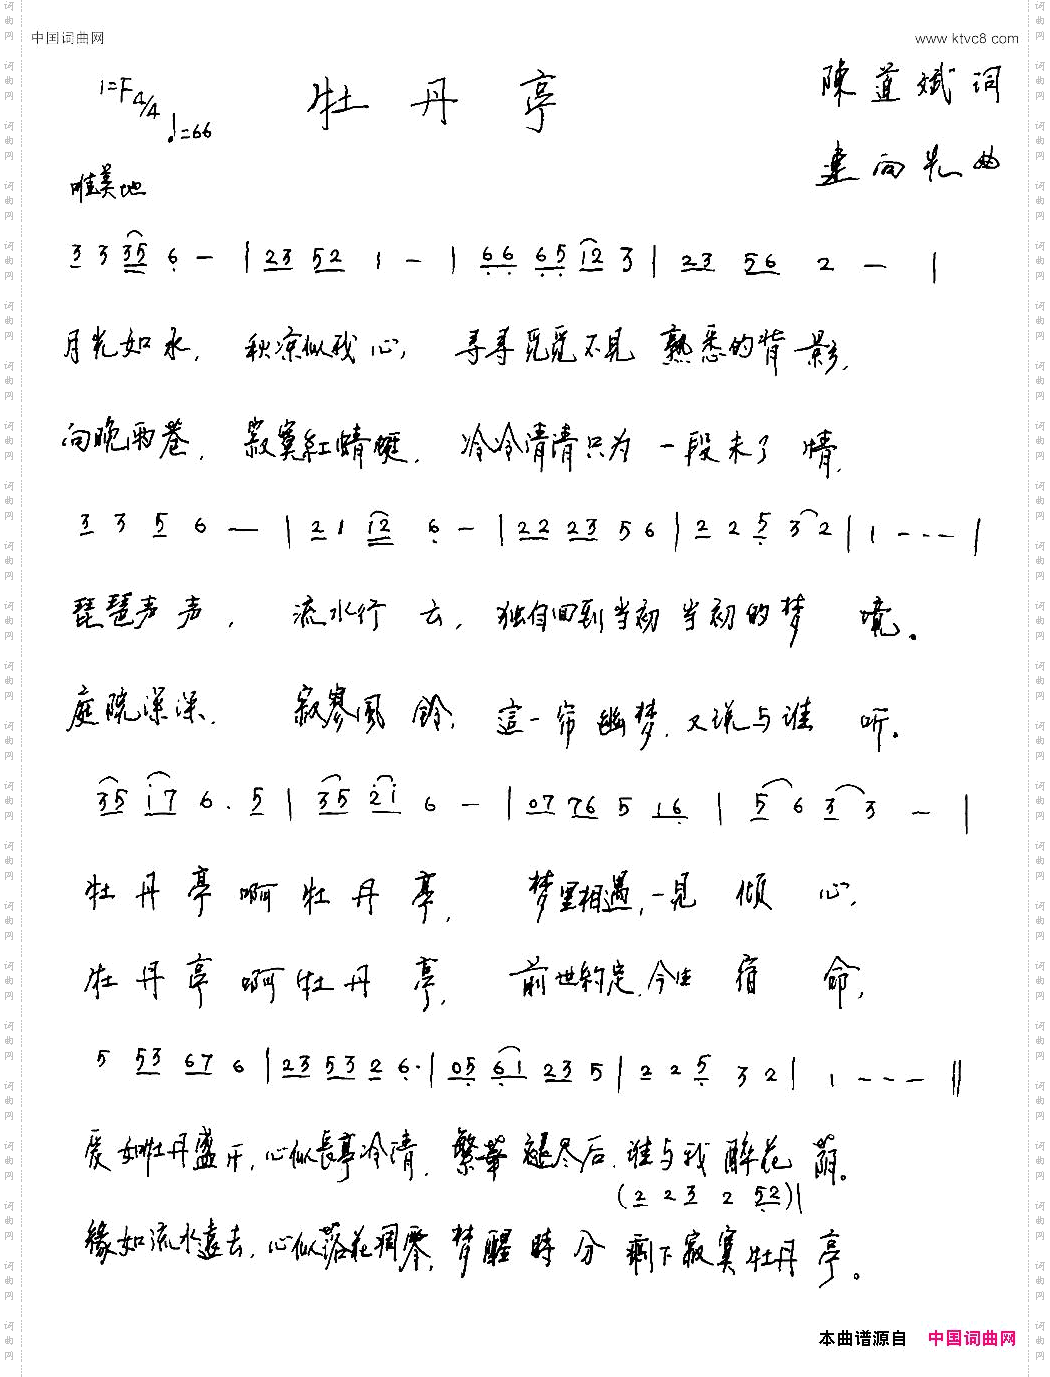 中国词曲网 www.ktvc8.com
1=F 4/4 ♩=66 牡丹亭 陳道斌 词
唯美地 建向光 曲
3 3 35 6 - | 23 52 1 - | 66 65 12 3 | 23 56 2 - |
月光如水, 秋凉似我心, 寻寻觅觅不见 熟悉的背影,
向晚雨巷, 寂寞紅蜻蜓, 冷冷清清只为 一段未了情,
3 3 5 6 - | 2 1 12 6 - | 22 23 5 6 | 2 2 5 3 2 | 1 - - - |
琵琶声声, 流水行云, 独自回到当初 当初的梦境。
庭院深深, 寂寥風鈴, 這一帘幽梦, 又说与谁听。
35 17 6. 5 | 35 21 6 - | 07 76 5 16 | 5 6 3 3 - |
牡丹亭啊牡丹亭, 梦里相遇,一見倾心,
牡丹亭啊牡丹亭, 前世約定,今生宿命,
5 53 67 6 | 23 53 2 6. | 05 61 23 5 | 2 2 5 3 2 | 1 - - - ‖
爱如牡丹盛开,心似長亭冷清, 繁華褪尽后,谁与我醉花荫。
(2 2 3 2 52)|
緣如流水遠去,心似落花凋零, 梦醒時分 剩下寂寞牡丹亭。
本曲谱源自 中国词曲网